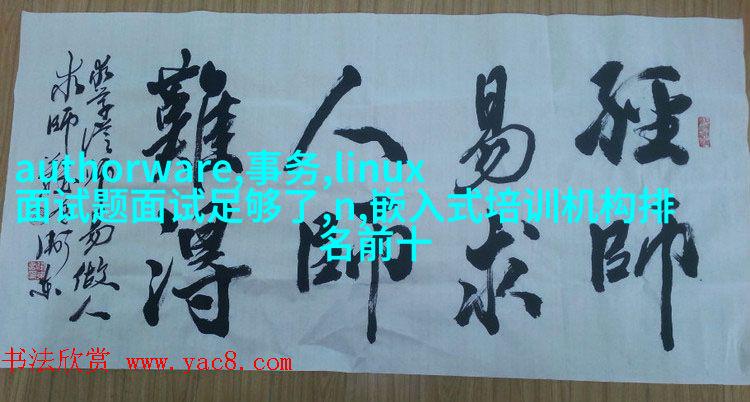 經師
易求
人師
難得
authorware,事务,linux
面试题面试足够了,n,嵌入式培训机构排
名前十
书法欣赏 www.yac8.com